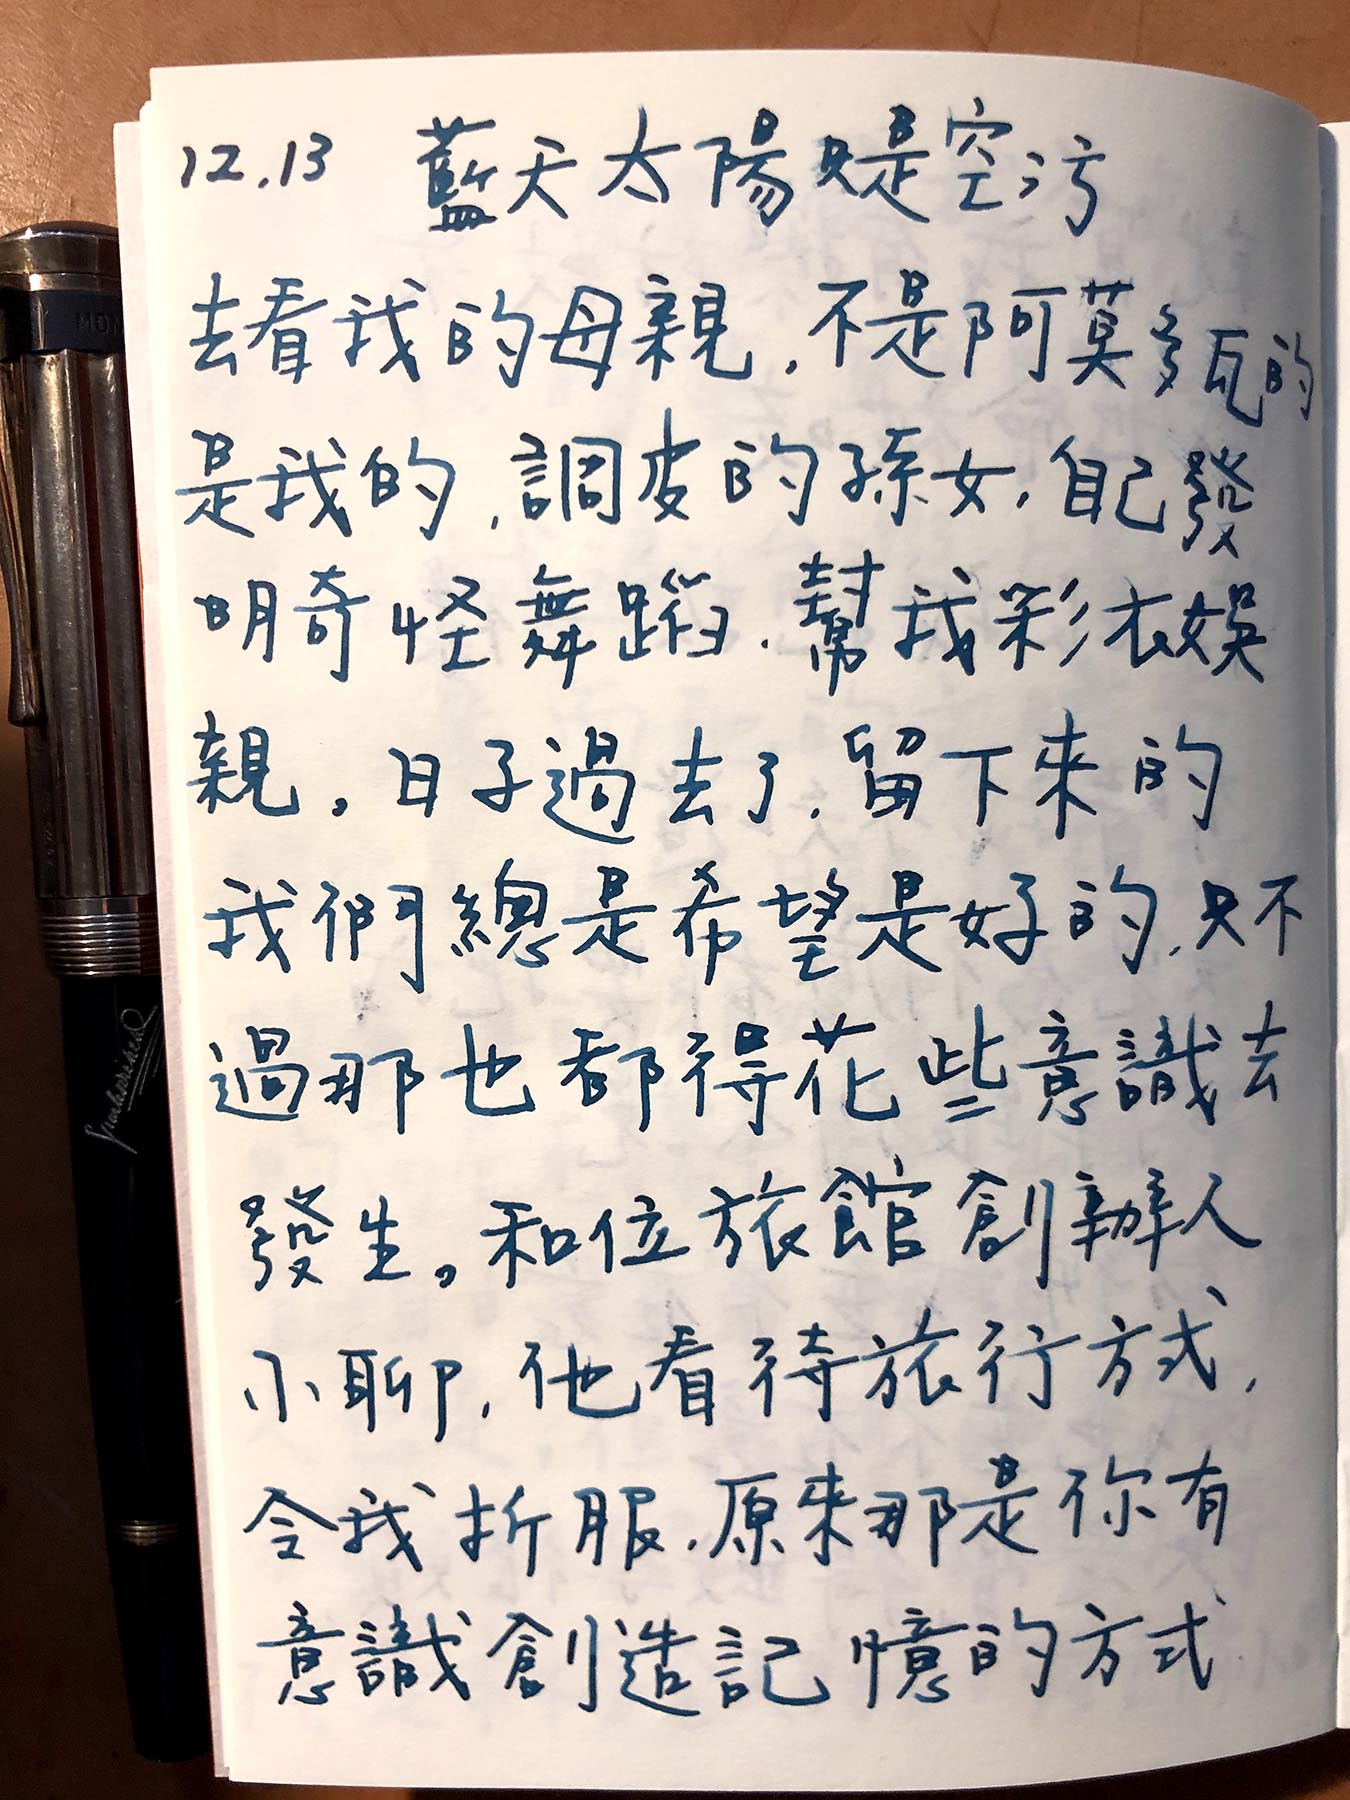 12.13 藍天太陽只是空污
去看我的母親,不是阿莫多瓦的
是我的,調皮的孫女,自己發
明奇怪舞蹈,幫我彩衣娛
親。日子過去了,留下來的
我們總是希望是好的,只不
過那也都得花些意識去
發生。和位旅館創辦人
小聊,他看待旅行方式,
令我折服,原來那是你有
意識創造記憶的方式